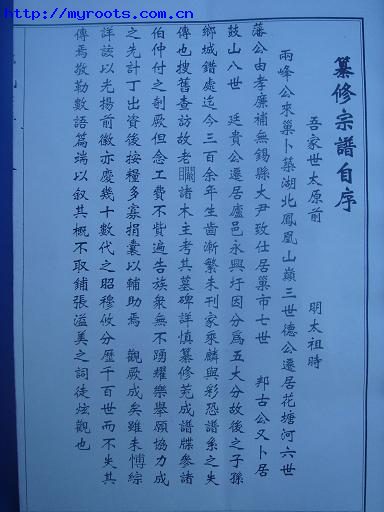 http://myroots.com.cn
纂修宗譜自序
吾家世太原前 明太祖時
兩峰公來巢卜築湖北鳳凰山巔三世德公遷居花塘河六世
藩公由孝廉補無錫縣大尹致仕居巢市七世 邦古公又卜居
鼓山八世 廷貴公遷居廬邑永興圩因分為五大分故後之子孫
鄉城錯處迄今三百余年生齒漸繁未刊家乘麟與彩恐譜系之失
傳也搜舊查訪故老闔諸木主考其墓碑詳慎纂修莞成譜牒參諸
伯仲付之剞厥但念工費不貲遍告族衆無不踴耀樂舉願協力成
之先計丁出資後按糧多寡捐囊以輔助焉 觀厥成矣雖未博綜
詳該以光揚前徽亦慶幾十數代之昭穆攸分歷千百世而不失其
傳焉敬勒數語篇端以叙其概不取鋪張溢美之詞徒炫觀也